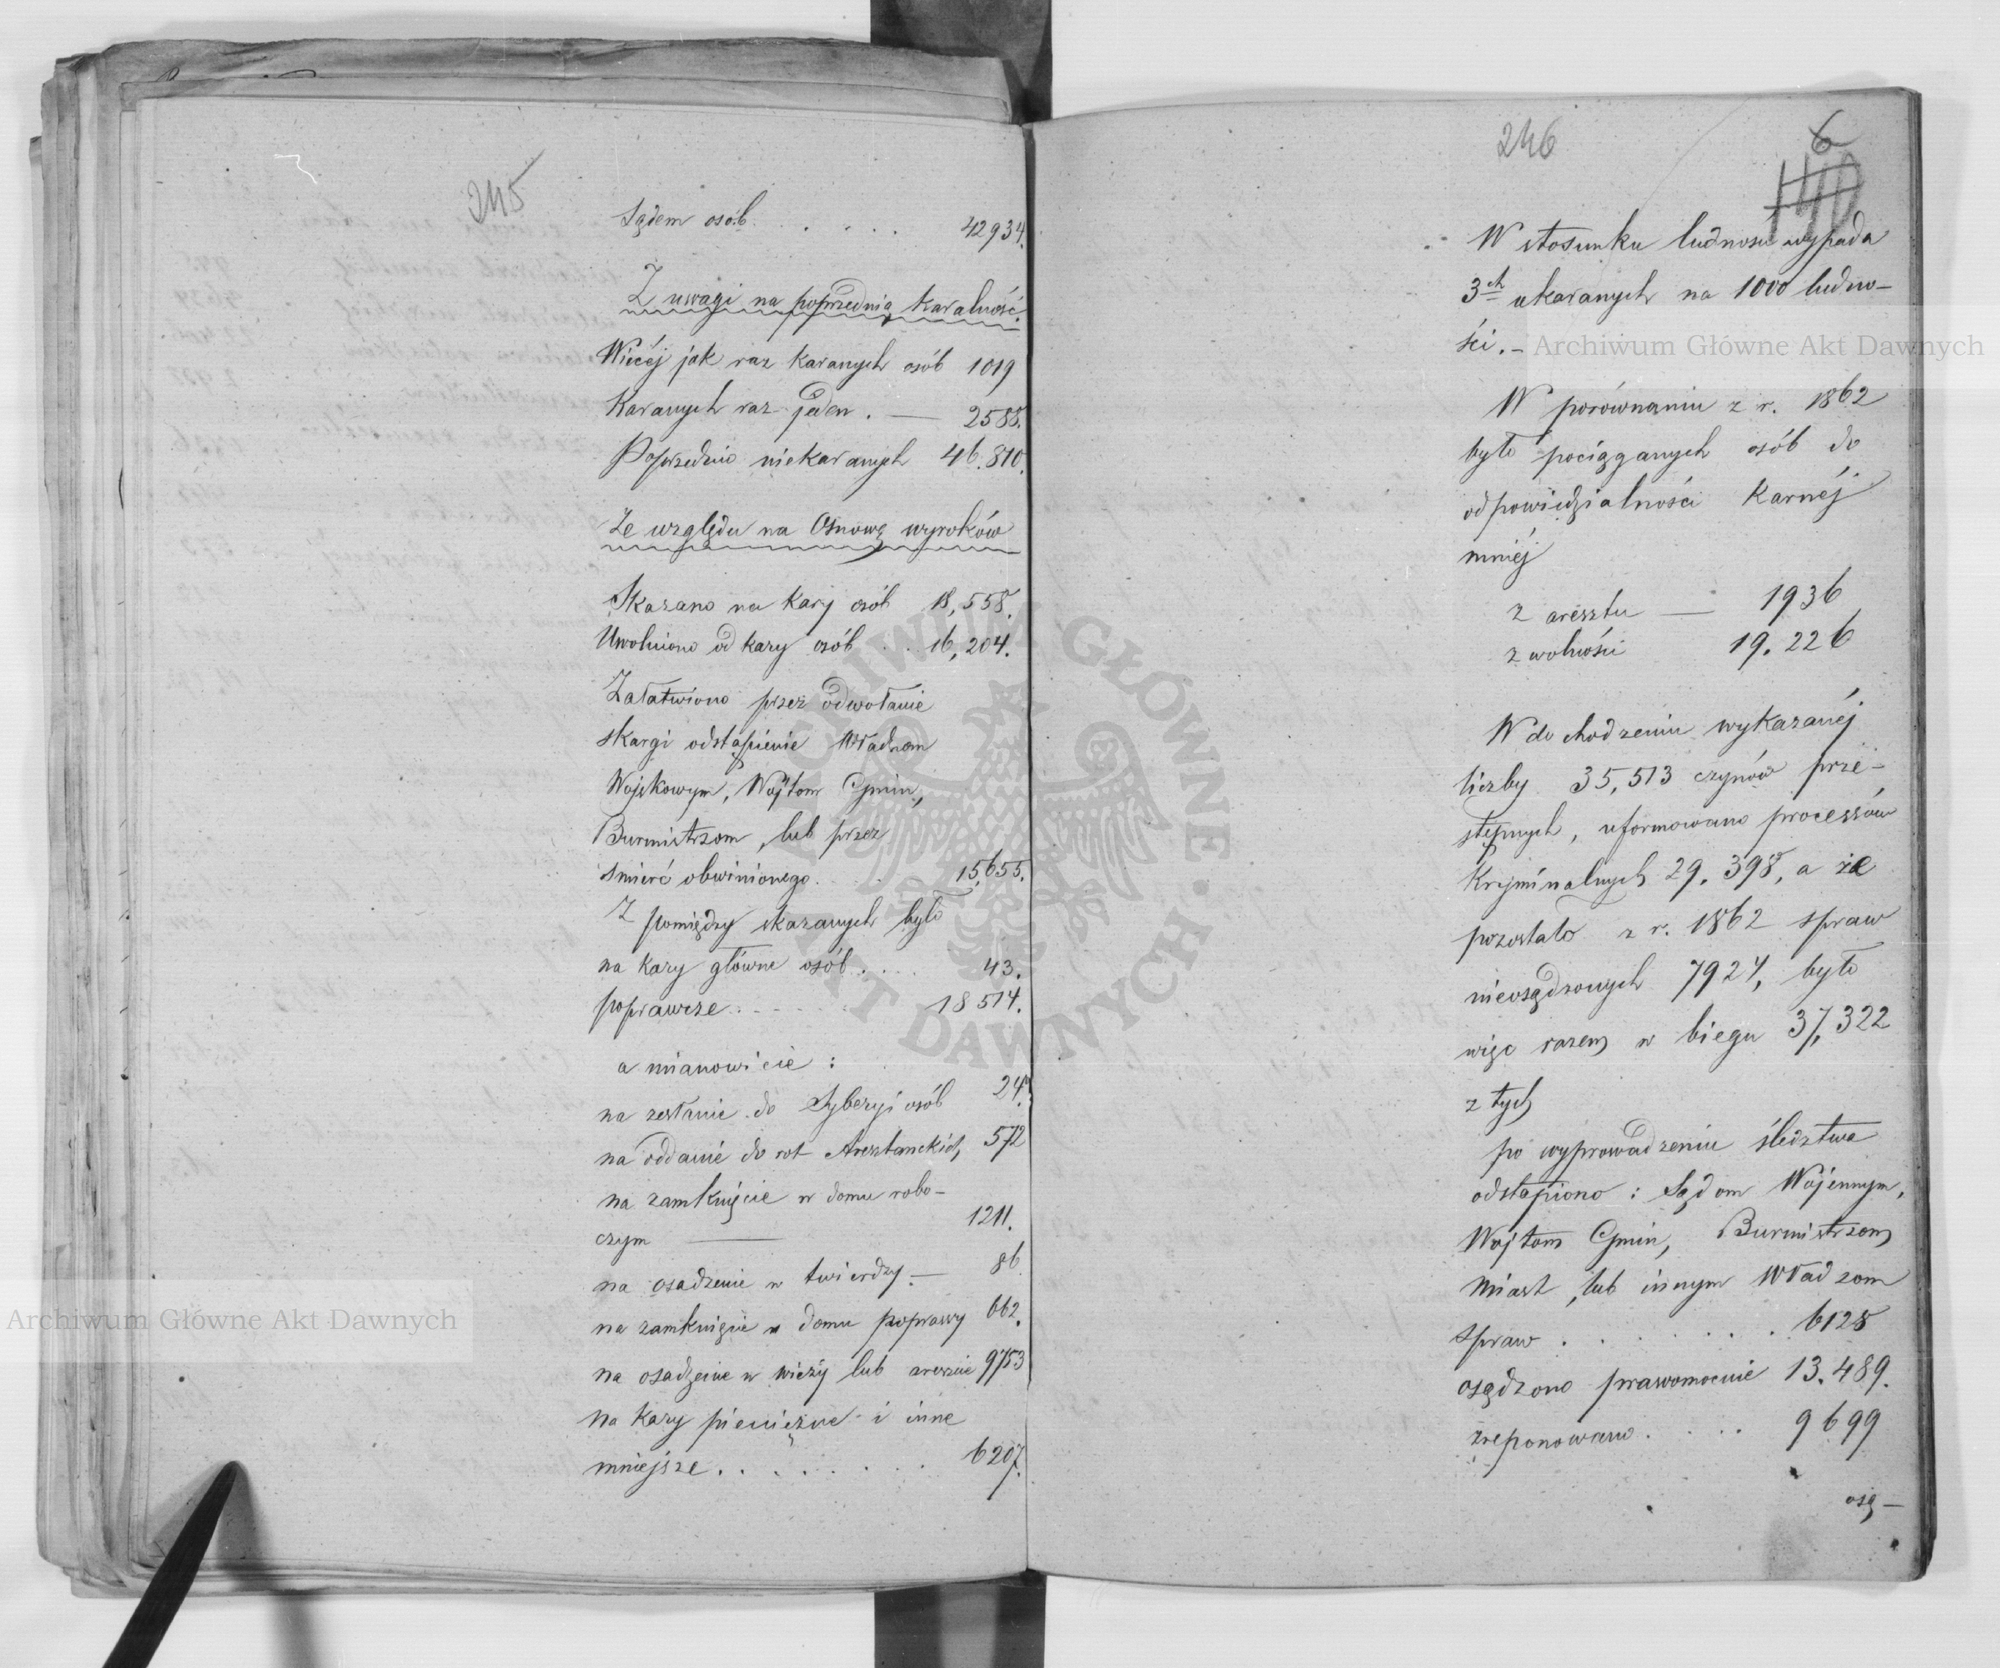 245
Sądem osób . . . . . 42934.
Z uwagi na poprzednią karalność.
Więcéj jak raz karanych osób 1019
Karanych raz jeden . — 2585.
Poprzednio niekaranych 46.810.
Ze względu na Osnowę wyroków
Skazano na kary osób 18,558.
Uwolniono od kary osób . . 16,204.
Załatwiono przez odwołanie
skargi odstąpienie Władzom
Wojskowym, Wójtom Gmin,
Burmistrzom, lub przez
śmierć obwinionego . . . 15,655.
Z pomiędzy skazanych było
na kary główne osób . . . . 43.
poprawcze . . . . . 18514.
a mianowicie :
na zesłanie do Syberyi osób 24.
na oddanie do rot Aresztanckich, 572
na zamknięcie w domu robo-
czym —— 1211.
na osadzenie w twierdzy. — 86
na zamknięcie w domu poprawy 662.
na osadzenie w wieży lub areszcie 9753
na kary pieniężne i inne
mniejsze . . . . . . . . 6207.
246
6
140
W stosunku ludności wypada
3ch ukaranych na 1000 ludno-
ści. –
W porównaniu z r. 1862
było pociąganych osób do
odpowiedzialności karnéj
mniéj
z aresztu — 1936
z wolności 19.226
W dochodzeniu wykazanéj
liczby 35,513 czynów prze-
stępnych, uformowano processów
kryminalnych 29.398, a że
pozostało z r. 1862 spraw
nieosądzonych 7924, było
więc razem w biegu 37,322
z tych
po wyprowadzeniu śledztwa
odstąpiono : Sądom Wojennym,
Wójtom Gmin, Burmistrzom
Miast, lub innym Władzom
spraw . . . . . . . 6125
osądzono prawomocnie 13.489.
zreponowano . . . . 9699
osą—
Archiwum Główne Akt Dawnych
Archiwum Główne Akt Dawnych
ARCHIWUM GŁÓWNE AKT DAWNYCH